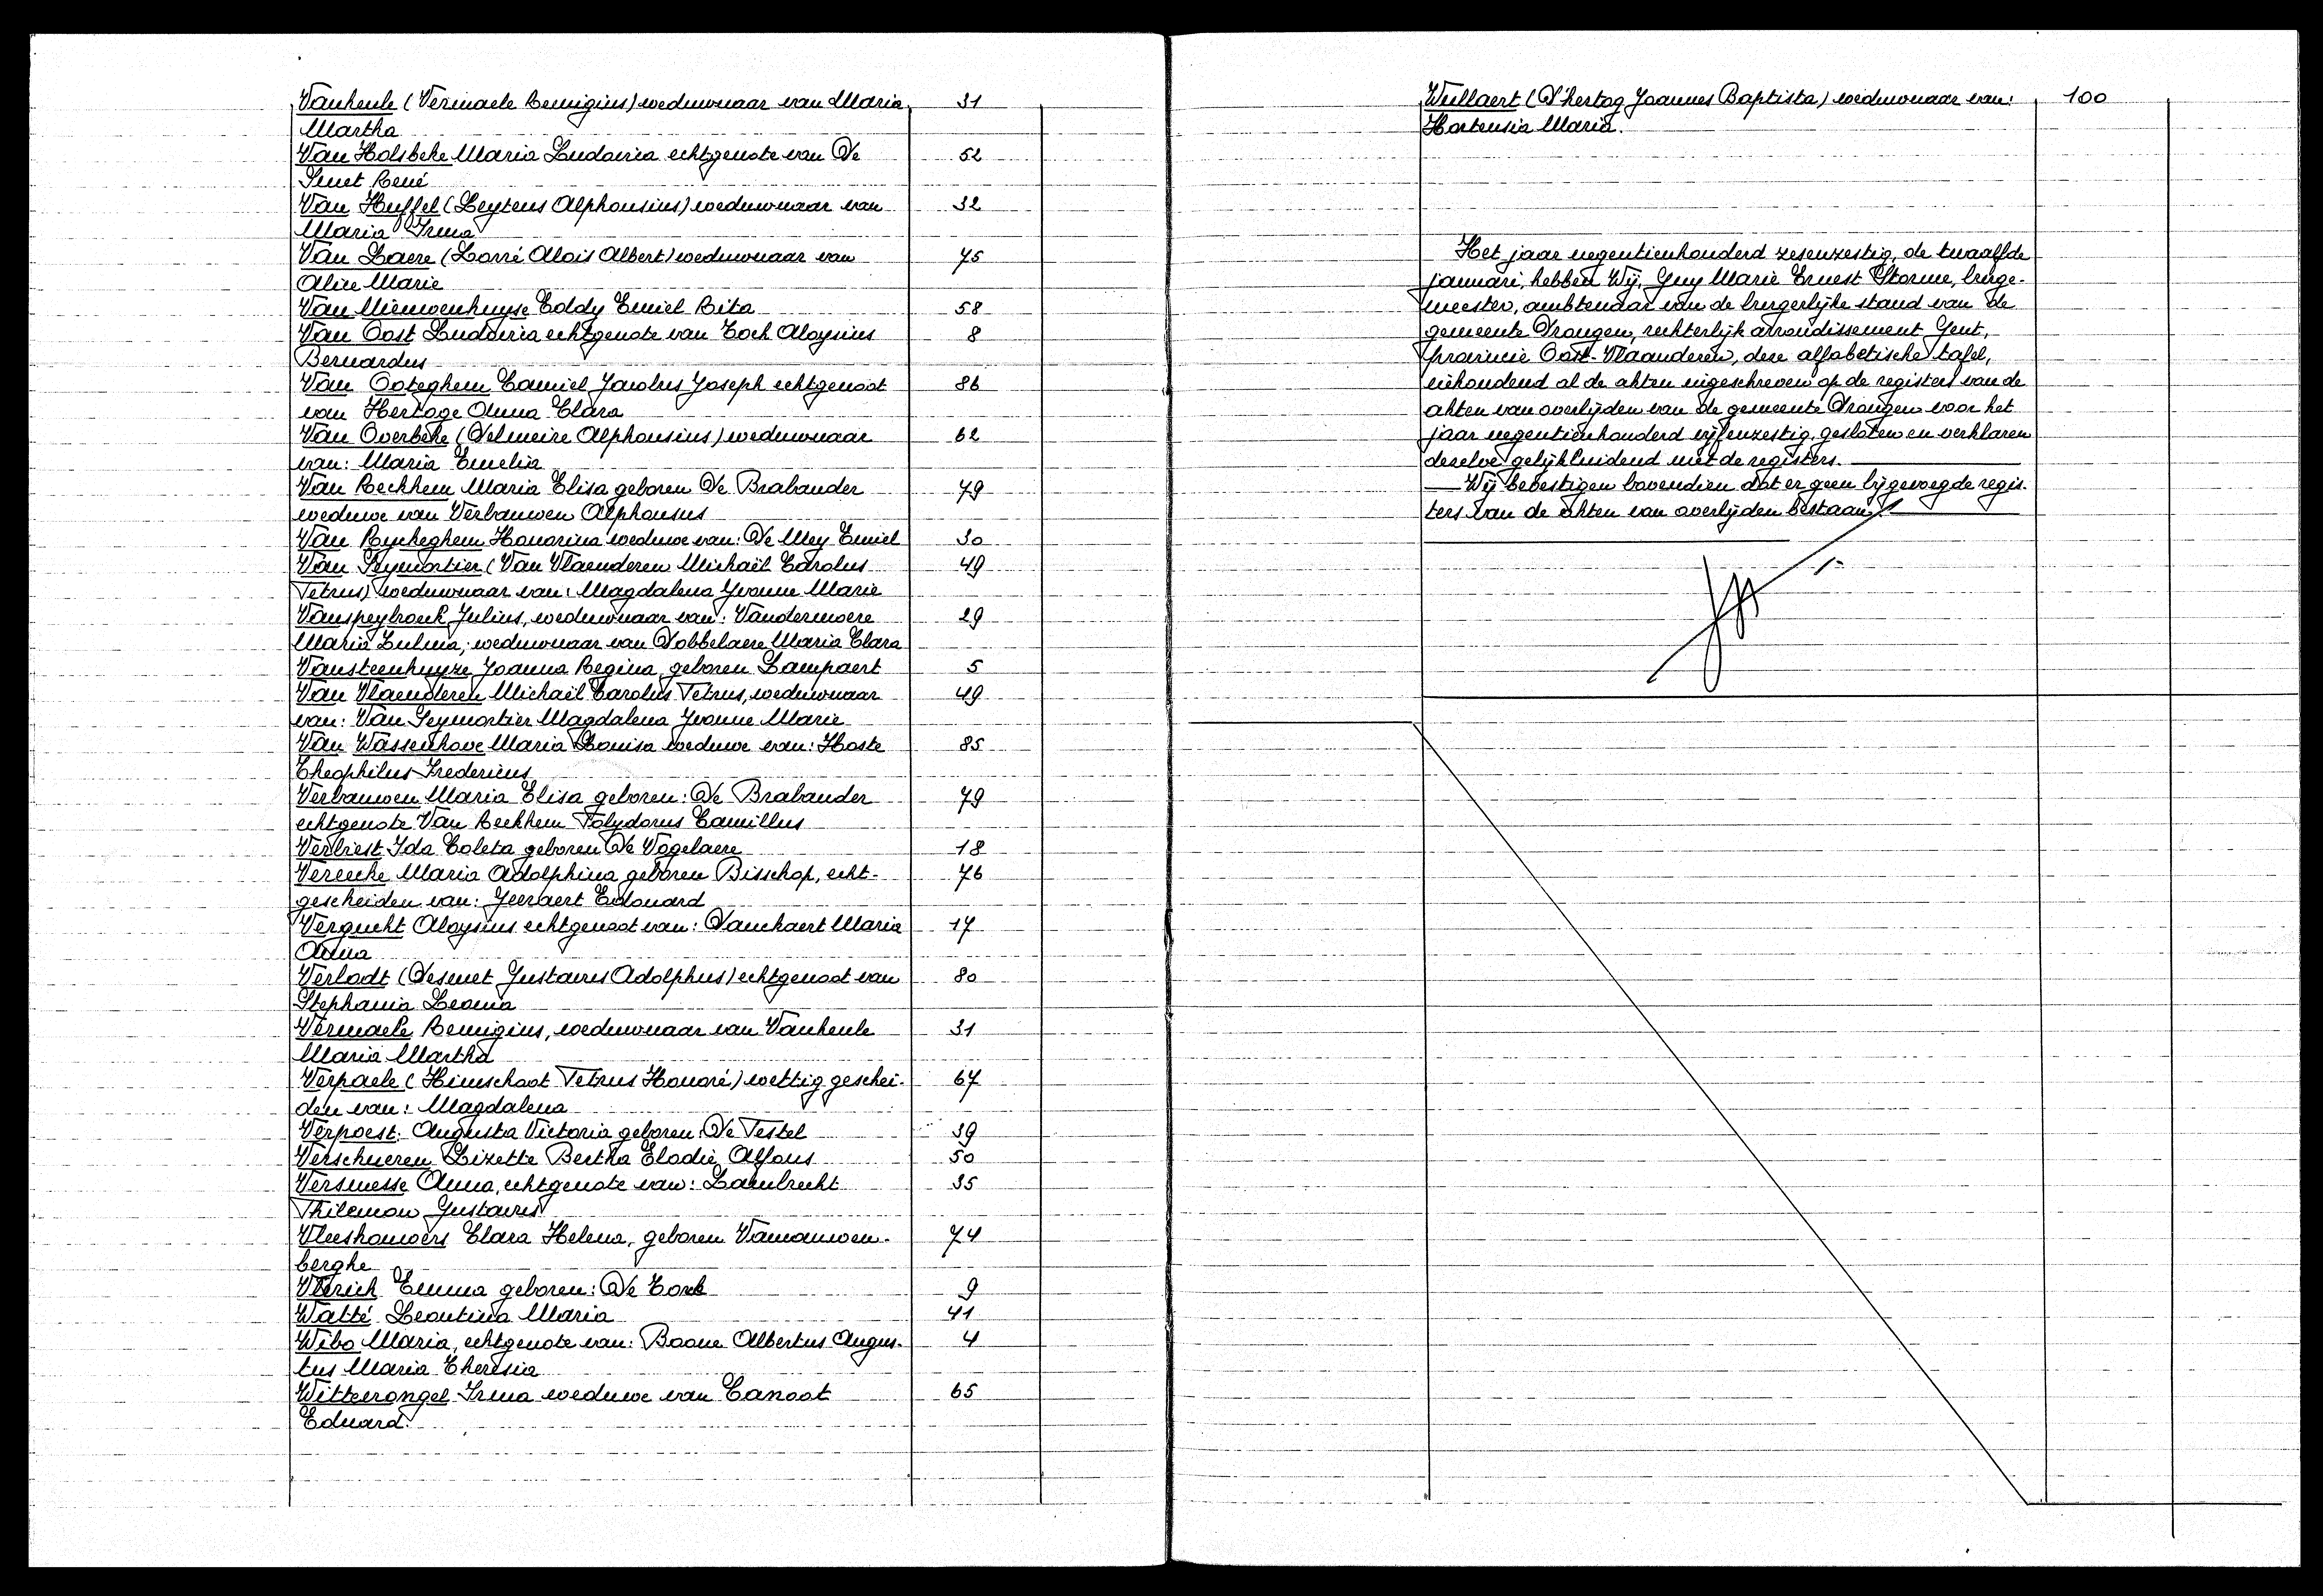 Vanheule (Vermaele Remigius) weduwnaar van Maria 31
Martha
Van Holsbeke Maria Ludovica echtgenote van De 52
Smet René
Van Huffel (Leytens Alphonsius) weduwnaar van 32
Maria Irma
Van Laere (Lorré Aloïs Albert) weduwnaar van 75
Alice Marie
Van Nieuwenhuyse Eddy Emiel Rita 58
Van Oost Ludovica echtgenote van Cock Aloysius 8
Bernardus
Van Ooteghem Camiel Jacobus Joseph echtgenoot 86
van Hertoge Anna Clara
Van Overbeke (Delmeire Alphonsius) weduwnaar 62
van: Maria Emelia
Van Reckhem Maria Elisa geboren De Brabander 79
weduwe van Verbauwen Alphonsus
Van Ryckeghem Honorina weduwe van: De Mey Emiel 30
Van Seymortier (Van Vlaenderen Michaël Carolus 49
Petrus) weduwnaar van: Magdalena Yvonne Marie
Vanspeybrouck Julius, weduwnaar van: Vandermoere 29
Maria Zulma; weduwnaar van Dobbelaere Maria Clara
Vansteenhuyze Joanna Regina geboren Lampaert 5
Van Vlaenderen Michaël Carolus Petrus, weduwnaar 49
van: Van Seymortier Magdalena Yvonne Marie
Van Wassenhove Maria Louisa weduwe van: Hoste 85
Theophilus Fredericus
Verbauwen Maria Elisa geboren: De Brabander 79
echtgenote Van Reckhem Polydorus Camillus
Verbiest Ida Coleta geboren De Vogelaere 18
Vereecke Maria Adolphina geboren Bisschop, echt- 76
gescheiden van: Geeraert Edouard
Vergucht Aloysius echtgenoot van: Danckaert Maria 17
Anna
Verlodt (Desmet Gustavus Adolphus) echtgenoot van 80
Stephania Leonia
Vermaele Remigius, weduwnaar van Vanheule 31
Maria Martha
Verpaele (Himschoot Petrus Honoré) wettig geschei- 67
den van: Magdalena
Verpoest. Augusta Victoria geboren: De Pestel 39
Verschueren Lizette Bertha Elodie Alfons 50
Versmesse Anna, echtgenote van: Lambrecht 35
Philemon Gustavus
Vleeshouwers Clara Helena, geboren Vancauwen- 74
berghe
Vlerick Emma geboren: De Cock 9
Watté Leontina Maria 41
Wibo Maria, echtgenote van: Boone Albertus Augus- 4
tus Maria Theresia
Wittevrongel Irma weduwe van Canoot 65
Eduard.
Wullaert (D'hertog Joannes Baptista) weduwnaar van: 100
Hortensia Maria.
Het jaar negentienhonderd zesenzestig, de twaalfde
januari, hebben Wij, Guy Marie Ernest Storme, burge-
meester, ambtenaar van de burgerlijke stand van de
gemeente Drongen, rechterlijk arrondissement Gent,
provincie Oost-Vlaanderen, deze alfabetische tafel,
inhoudend al de akten ingeschreven op de registers van de
akten van overlijden van de gemeente Drongen voor het
jaar negentienhonderd vijfenzestig, gesloten en verklaren
dezelve gelijkluidend met de registers.
Wij bevestigen bovendien dat er geen bijgevoegde regis-
ters van de akten van overlijden bestaan.